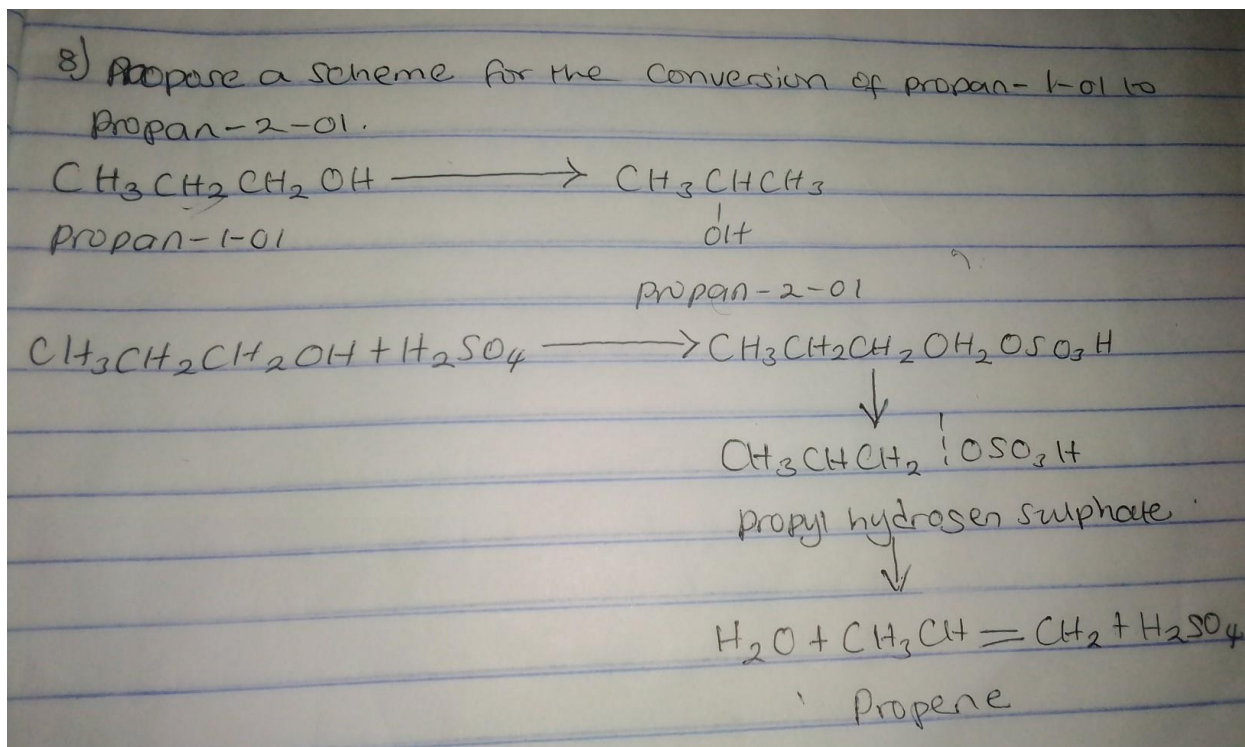 8) Propose a scheme for the conversion of propan-1-ol to
propan-2-ol.
CH₃CH₂CH₂OH ⟶ CH₃CHCH₃
propan-1-ol OH
propan-2-ol
CH₃CH₂CH₂OH + H₂SO₄ ⟶ CH₃CH₂CH₂OH₂OSO₃H
↓
CH₃CHCH₂ ¦ OSO₃H
propyl hydrogen sulphate
↓
H₂O + CH₃CH = CH₂ + H₂SO₄
Propene